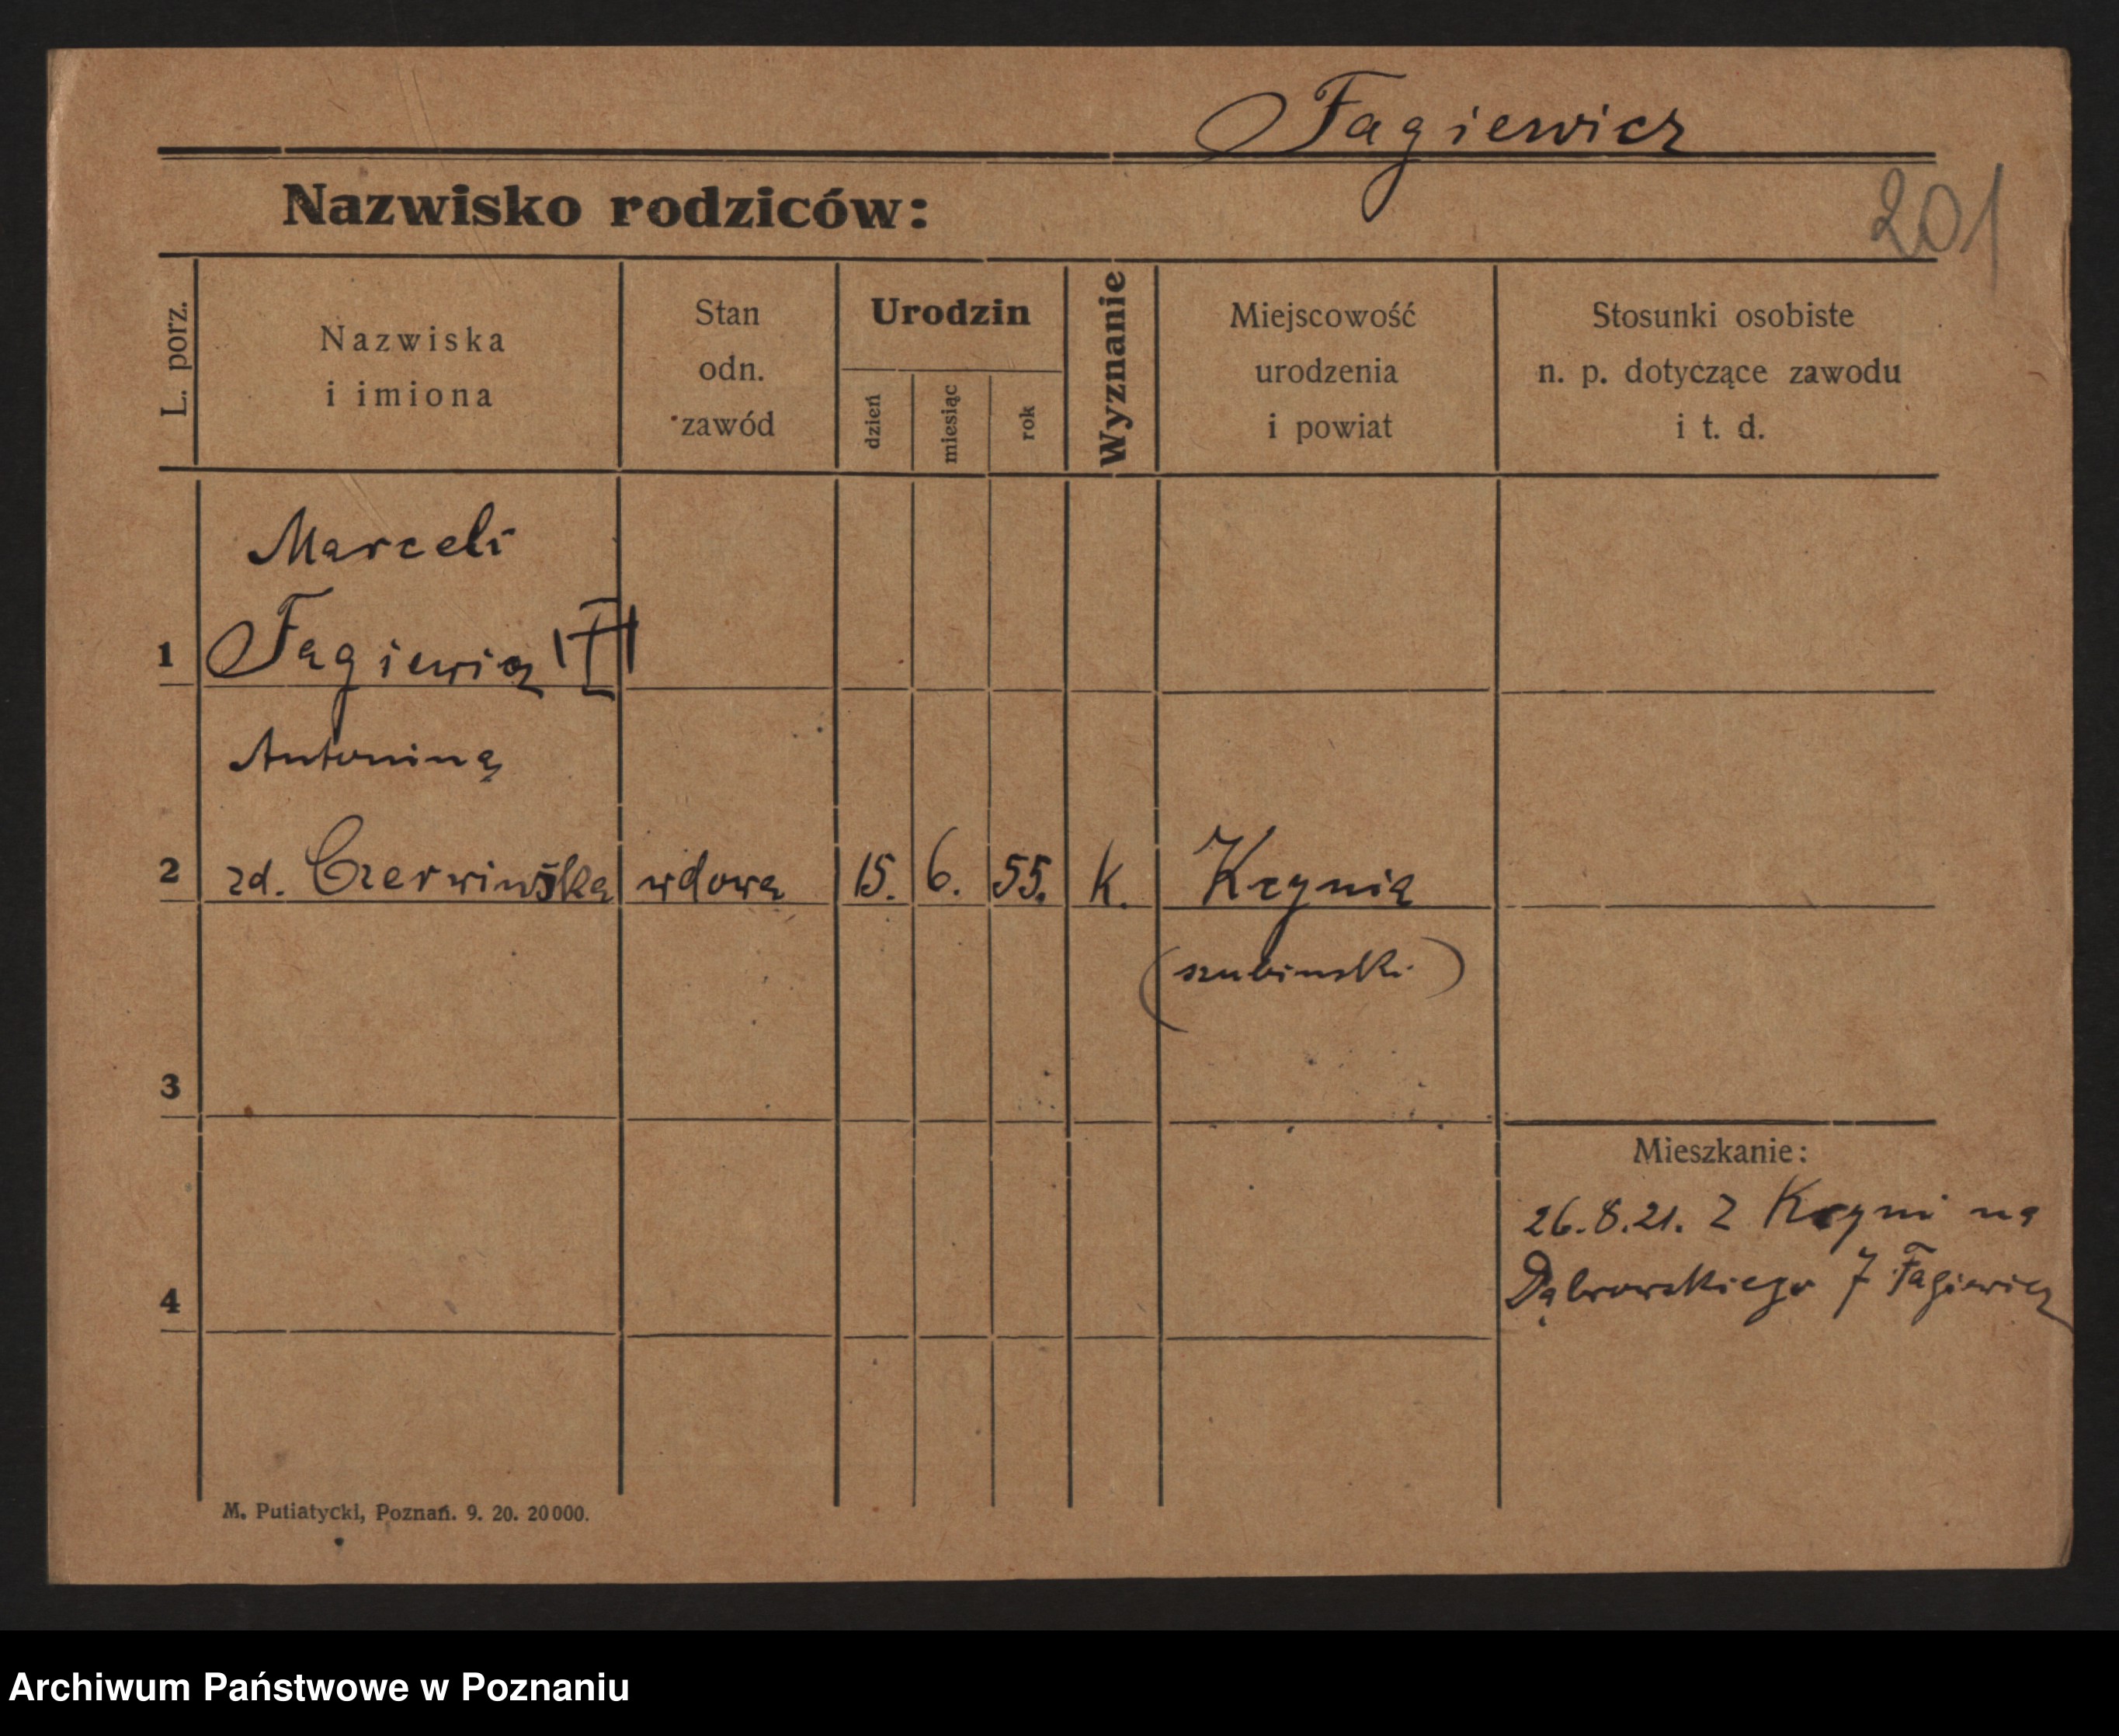 Fagiewicz
201
Nazwisko rodziców:
L. porz.
Nazwiska
i imiona
Stan
odn.
zawód
Urodzin
dzień
miesiąc
rok
Wyznanie
Miejscowość
urodzenia
i powiat
Stosunki osobiste
n. p. dotyczące zawodu
i t. d.
Marceli
1 Fagiewicz
Antonina
2 zd. Czerwińska wdowa 15. 6. 55. k. Kcynia
(szubinski)
3
Mieszkanie:
26.8.21. z Kcyni na
Dąbrowskiego 7 Fagiewicz
4
M. Putiatycki, Poznań. 9. 20. 20000.
Archiwum Państwowe w Poznaniu